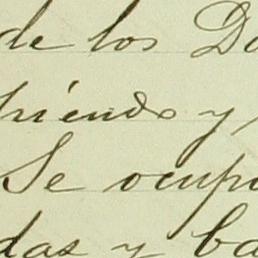 de los Do
hiendo y
Se ocup
das y ba